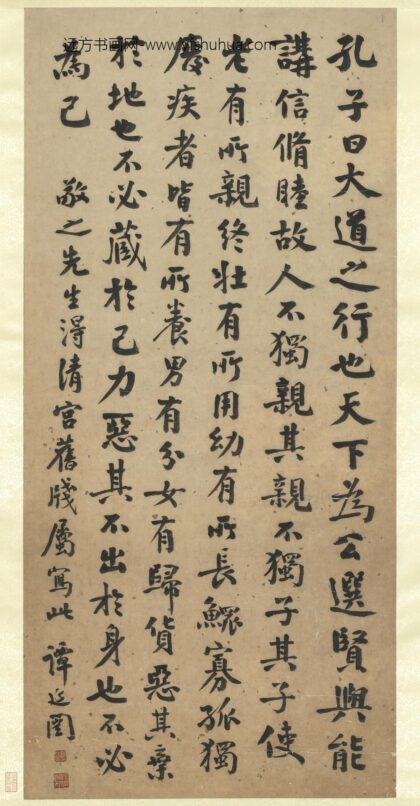 远方书画网 www.yishuhua.com
孔子曰大道之行也天下為公選賢與能
講信脩睦故人不獨親其親不獨子其子使
老有所親終壯有所用幼有所長鰥寡孤獨
廢疾者皆有所養男有分女有歸貨惡其棄
於地也不必藏於己力惡其不出於身也不必
為己
敬之先生得清宮舊牋屬寫此 譚延闓